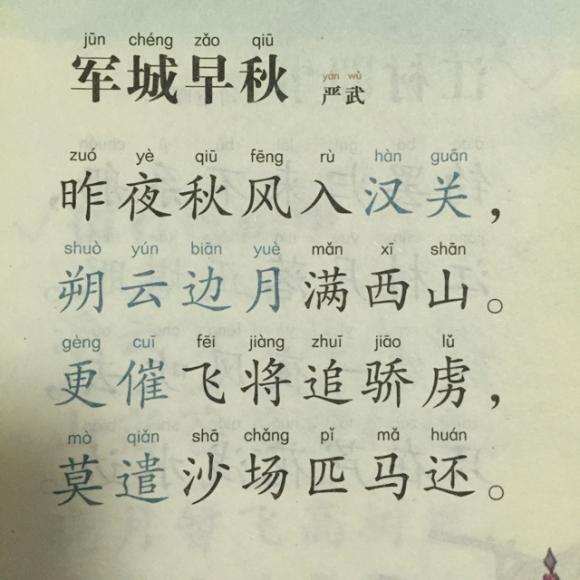 jūn chéng zǎo qiū
军城早秋 yán wǔ
严武
zuó yè qiū fēng rù hàn guān
昨夜秋风入汉关，
shuò yún biān yuè mǎn xī shān
朔云边月满西山。
gèng cuī fēi jiàng zhuī jiāo lǔ
更催飞将追骄虏，
mò qiǎn shā chǎng pǐ mǎ huán
莫遣沙场匹马还。